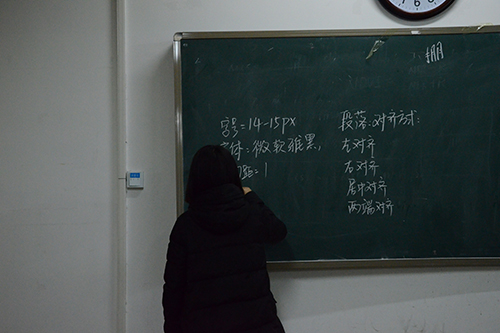 棚
字号=14-15px
体:微软雅黑,
距=1
段落:对齐方式:
左对齐
右对齐
居中对齐
两端对齐